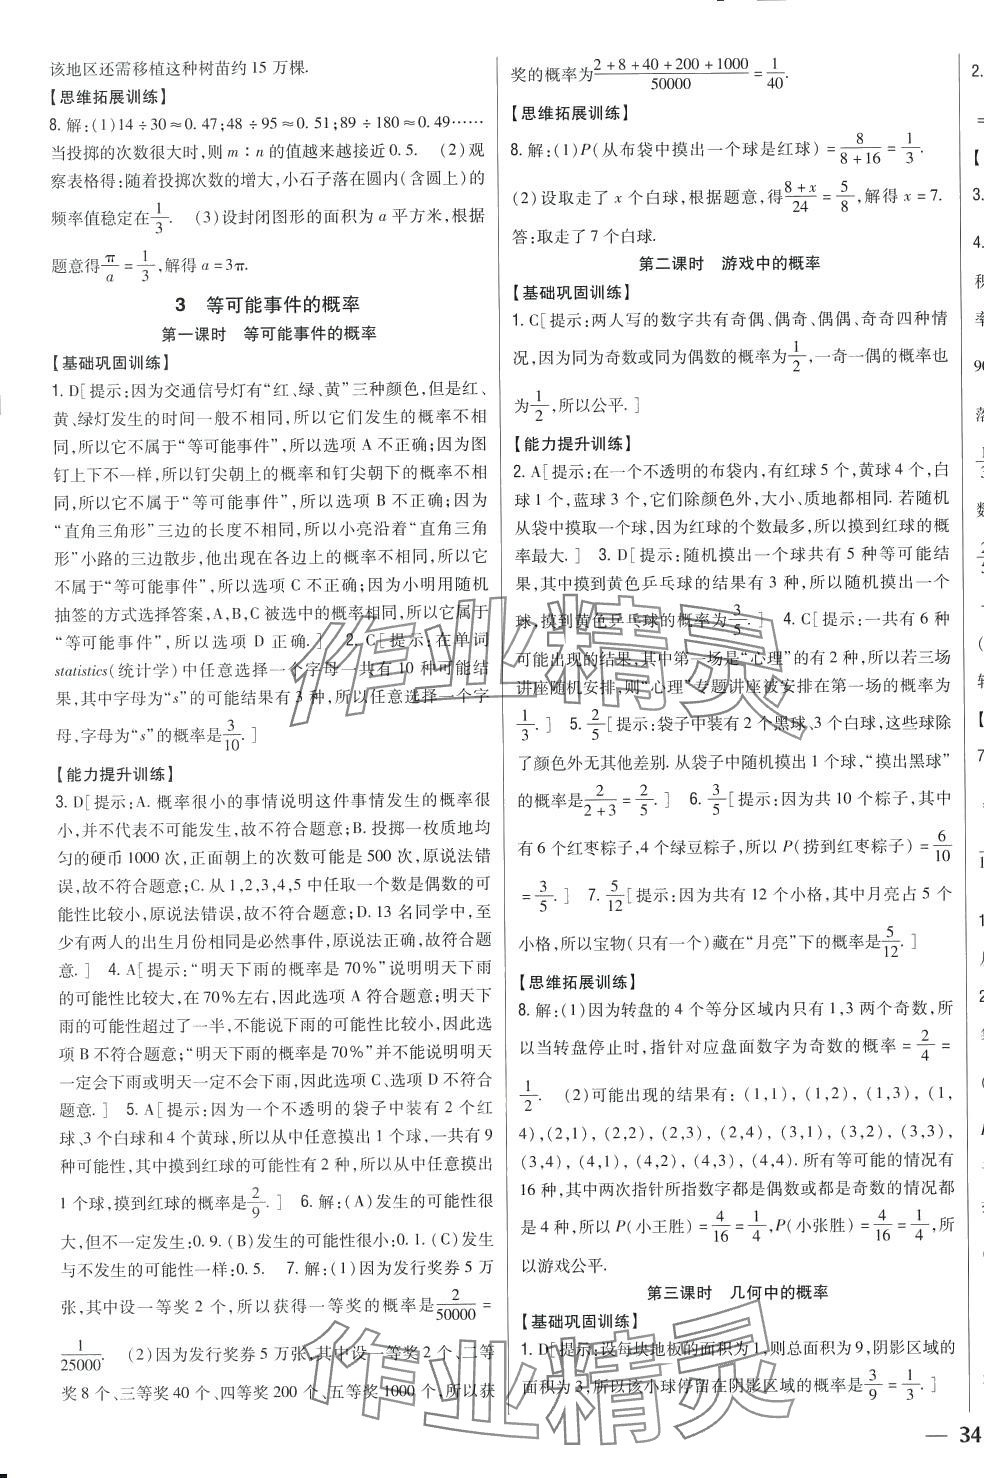 该地区还需移植这种树苗约 15 万棵.
【思维拓展训练】
8. 解:(1)14÷30≈0.47;48÷95≈0.51;89÷180≈0.49……
当投掷的次数很大时,则 m∶n 的值越来越接近 0.5. (2)观
察表格得:随着投掷次数的增大,小石子落在圆内(含圆上)的
频率值稳定在1/3. (3)设封闭图形的面积为 a 平方米,根据
题意得π/a=1/3,解得 a=3π.
3 等可能事件的概率
第一课时 等可能事件的概率
【基础巩固训练】
1. D[提示:因为交通信号灯有“红、绿、黄”三种颜色,但是红、
黄、绿灯发生的时间一般不相同,所以它们发生的概率不相
同,所以它不属于“等可能事件”,所以选项 A 不正确;因为图
钉上下不一样,所以钉尖朝上的概率和钉尖朝下的概率不相同,
所以它不属于“等可能事件”,所以选项 B 不正确;因为
“直角三角形”三边的长度不相同,所以小亮沿着“直角三角
形”小路的三边散步,他出现在各边上的概率不相同,所以它
不属于“等可能事件”,所以选项 C 不正确;因为小明用随机
抽签的方式选择答案,A,B,C 被选中的概率相同,所以它属于
“等可能事件”,所以选项 D 正确.] 2. C[提示:在单词
statistics(统计学)中任意选择一个字母一共有 10 种可能结
果,其中字母为“s”的可能结果有 3 种,所以任意选择一个字
母,字母为“s”的概率是3/10.]
【能力提升训练】
3. D[提示:A. 概率很小的事情说明这件事情发生的概率很
小,并不代表不可能发生,故不符合题意;B. 投掷一枚质地均
匀的硬币 1000 次,正面朝上的次数可能是 500 次,原说法错
误,故不符合题意;C. 从 1,2,3,4,5 中任取一个数是偶数的可
能性比较小,原说法错误,故不符合题意;D. 13 名同学中,至
少有两人的出生月份相同是必然事件,原说法正确,故符合题
意.] 4. A[提示:“明天下雨的概率是 70%”说明明天下雨
的可能性比较大,在 70%左右,因此选项 A 符合题意;明天下
雨的可能性超过了一半,不能说下雨的可能性比较小,因此选
项 B 不符合题意;“明天下雨的概率是 70%”并不能说明明天
一定会下雨或明天一定不会下雨,因此选项 C、选项 D 不符合
题意.] 5. A[提示:因为一个不透明的袋子中装有 2 个红
球、3 个白球和 4 个黄球,所以从中任意摸出 1 个球,一共有 9
种可能性,其中摸到红球的可能性有 2 种,所以从中任意摸出
1 个球,摸到红球的概率是2/9.] 6. 解:(A)发生的可能性很
大,但不一定发生:0.9. (B)发生的可能性很小:0.1. (C)发生
与不发生的可能性一样:0.5. 7. 解:(1)因为发行奖券 5 万
张,其中设一等奖 2 个,所以获得一等奖的概率是2/50000=
1/25000. (2)因为发行奖券 5 万张,其中设一等奖 2 个、二等
奖 8 个、三等奖 40 个、四等奖 200 个、五等奖 1000 个,所以获
奖的概率为2+8+40+200+1000/50000=1/40.
【思维拓展训练】
8. 解:(1)P(从布袋中摸出一个球是红球)=8/8+16=1/3.
(2)设取走了 x 个白球,根据题意,得8+x/24=5/8,解得 x=7.
答:取走了 7 个白球.
第二课时 游戏中的概率
【基础巩固训练】
1. C[提示:两人写的数字共有奇偶、偶奇、偶偶、奇奇四种情
况,因为同为奇数或同为偶数的概率为1/2,一奇一偶的概率也
为1/2,所以公平.]
【能力提升训练】
2. A[提示:在一个不透明的布袋内,有红球 5 个,黄球 4 个,白
球 1 个,蓝球 3 个,它们除颜色外,大小、质地都相同. 若随机
从袋中摸取一个球,因为红球的个数最多,所以摸到红球的概
率最大.] 3. D[提示:随机摸出一个球共有 5 种等可能结
果,其中摸到黄色乒乓球的结果有 3 种,所以随机摸出一个
球,摸到黄色乒乓球的概率为3/5.] 4. C[提示:一共有 6 种
可能出现的结果,其中第一场是“心理”的有 2 种,所以若三场
讲座随机安排,则“心理”专题讲座被安排在第一场的概率为
1/3.] 5. 2/5[提示:袋子中装有 2 个黑球、3 个白球,这些球除
了颜色外无其他差别. 从袋子中随机摸出 1 个球,“摸出黑球”
的概率是2/2+3=2/5.] 6. 3/5[提示:因为共 10 个粽子,其中
有 6 个红枣粽子,4 个绿豆粽子,所以 P(捞到红枣粽子)=6/10
=3/5.] 7. 5/12[提示:因为共有 12 个小格,其中月亮占 5 个
小格,所以宝物(只有一个)藏在“月亮”下的概率是5/12.]
【思维拓展训练】
8. 解:(1)因为转盘的 4 个等分区域内只有 1,3 两个奇数,所
以当转盘停止时,指针对应盘面数字为奇数的概率=2/4=
1/2. (2)可能出现的结果有:(1,1),(1,2),(1,3),(1,
4),(2,1),(2,2),(2,3),(2,4),(3,1),(3,2),(3,3),
(3,4),(4,1),(4,2),(4,3),(4,4). 所有等可能的情况有
16 种,其中两次指针所指数字都是偶数或都是奇数的情况都
是 4 种,所以 P(小王胜)=4/16=1/4,P(小张胜)=4/16=1/4,所
以游戏公平.
第三课时 几何中的概率
【基础巩固训练】
1. D[提示:设每块地板的面积为 1,则总面积为 9,阴影区域的
面积为 3,所以该小球停留在阴影区域的概率为3/9=1/3.]
— 34
作业精灵
作业精灵